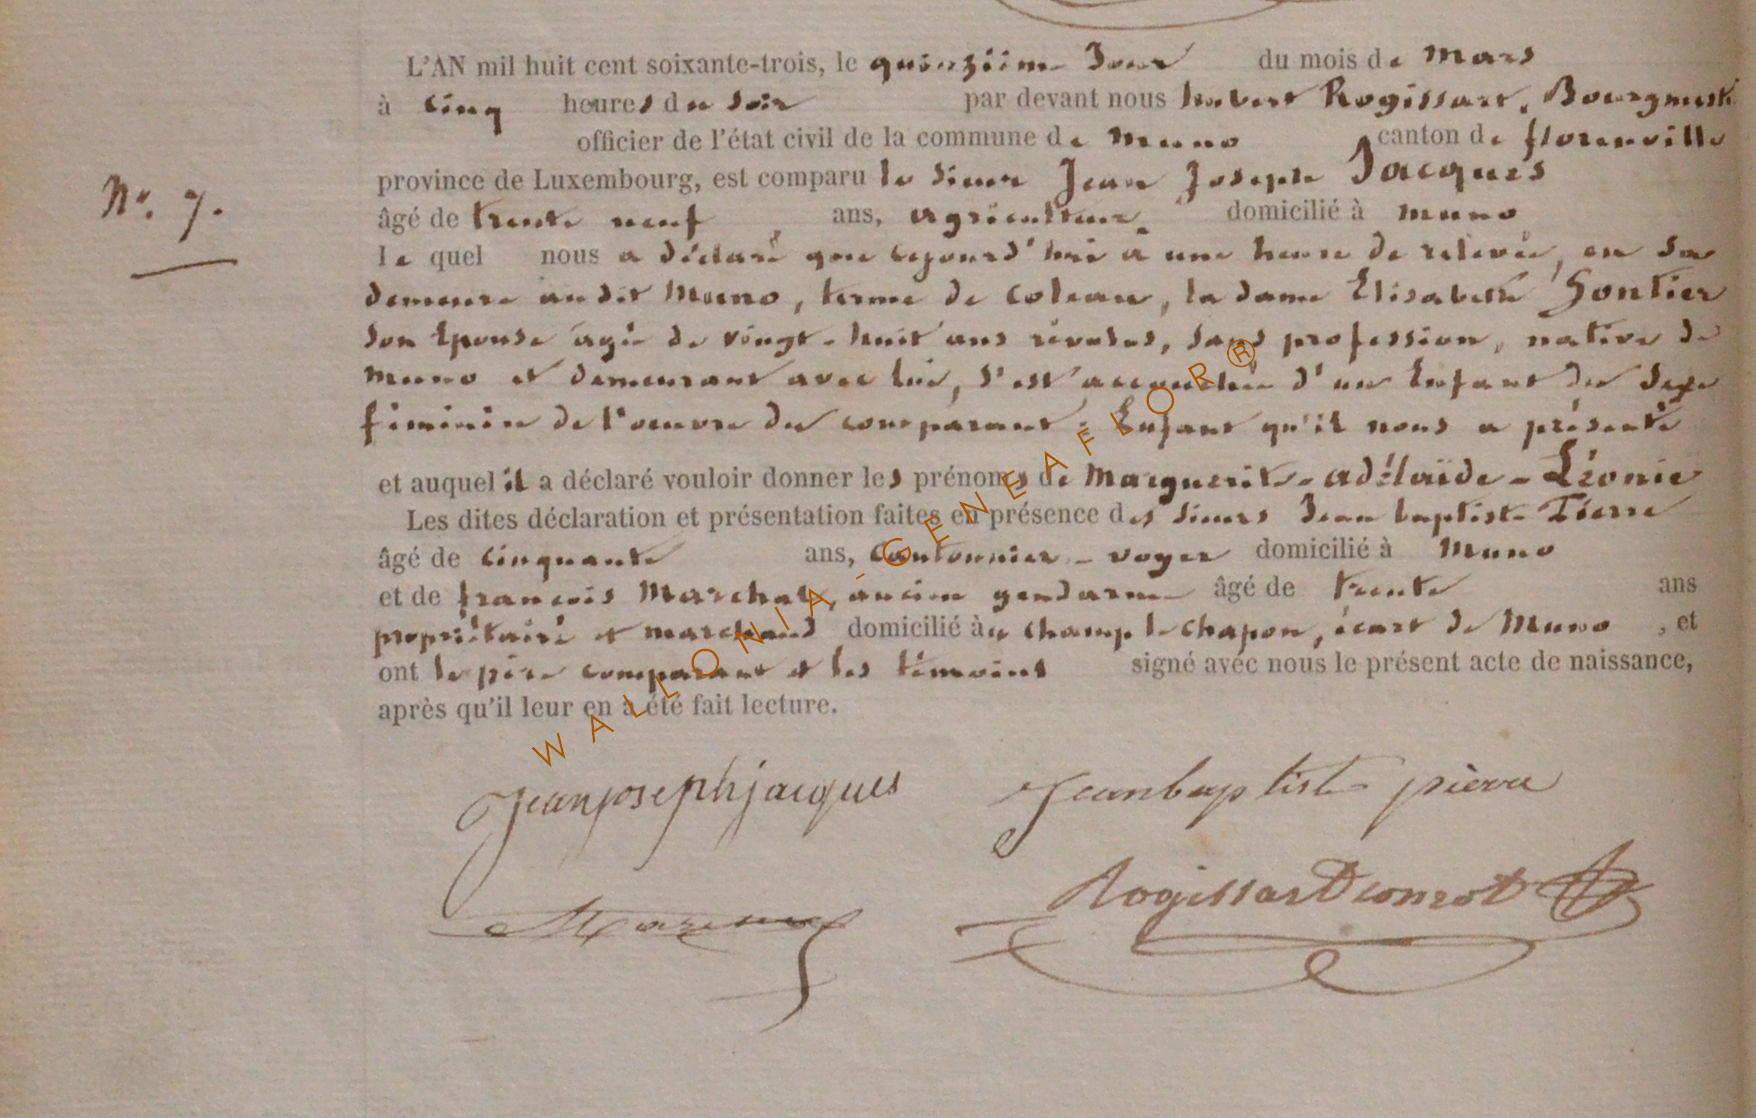 L'AN mil huit cent soixante-trois, le quinzième Jour du mois de Mars
à cinq heures du soir par devant nous hubert Rogissart, Bourgmestre
officier de l'état civil de la commune de Muno canton de florenville
province de Luxembourg, est comparu le sieur Jean Joseph Jacques
N°. 7.
âgé de trente neuf ans, agriculteur domicilié à Muno
le quel nous a déclaré que cejourd'hui à une heure de relevée, en sa
demeure audit Muno, ferme de , la dame Elisabeth Gontier
son Epouse agée de vingt-huit ans révolus, sans profession, native de
Muno et demeurant avec lui, s'est accouchée d'un Enfant du sexe
féminin de l'oeuvre du comparant ; Enfant qu'il nous a présenté
et auquel il a déclaré vouloir donner les prénoms de Marguerite-adélaïde-Léonie
Les dites déclaration et présentation faites en présence des sieurs Jean baptiste Pierre
âgé de cinquante ans, Cantonnier-voyer domicilié à Muno
et de françois Marchal, ancien gendarme âgé de trente ans
propriétaire et marchand domicilié à champ le chapon, écart de Muno , et
ont le père comparant et les témoins signé avec nous le présent acte de naissance,
après qu'il leur en a été fait lecture.
Jean joseph jacques Jean baptiste pierre
Rogissart
WALLONIA-GENEAFLOR®